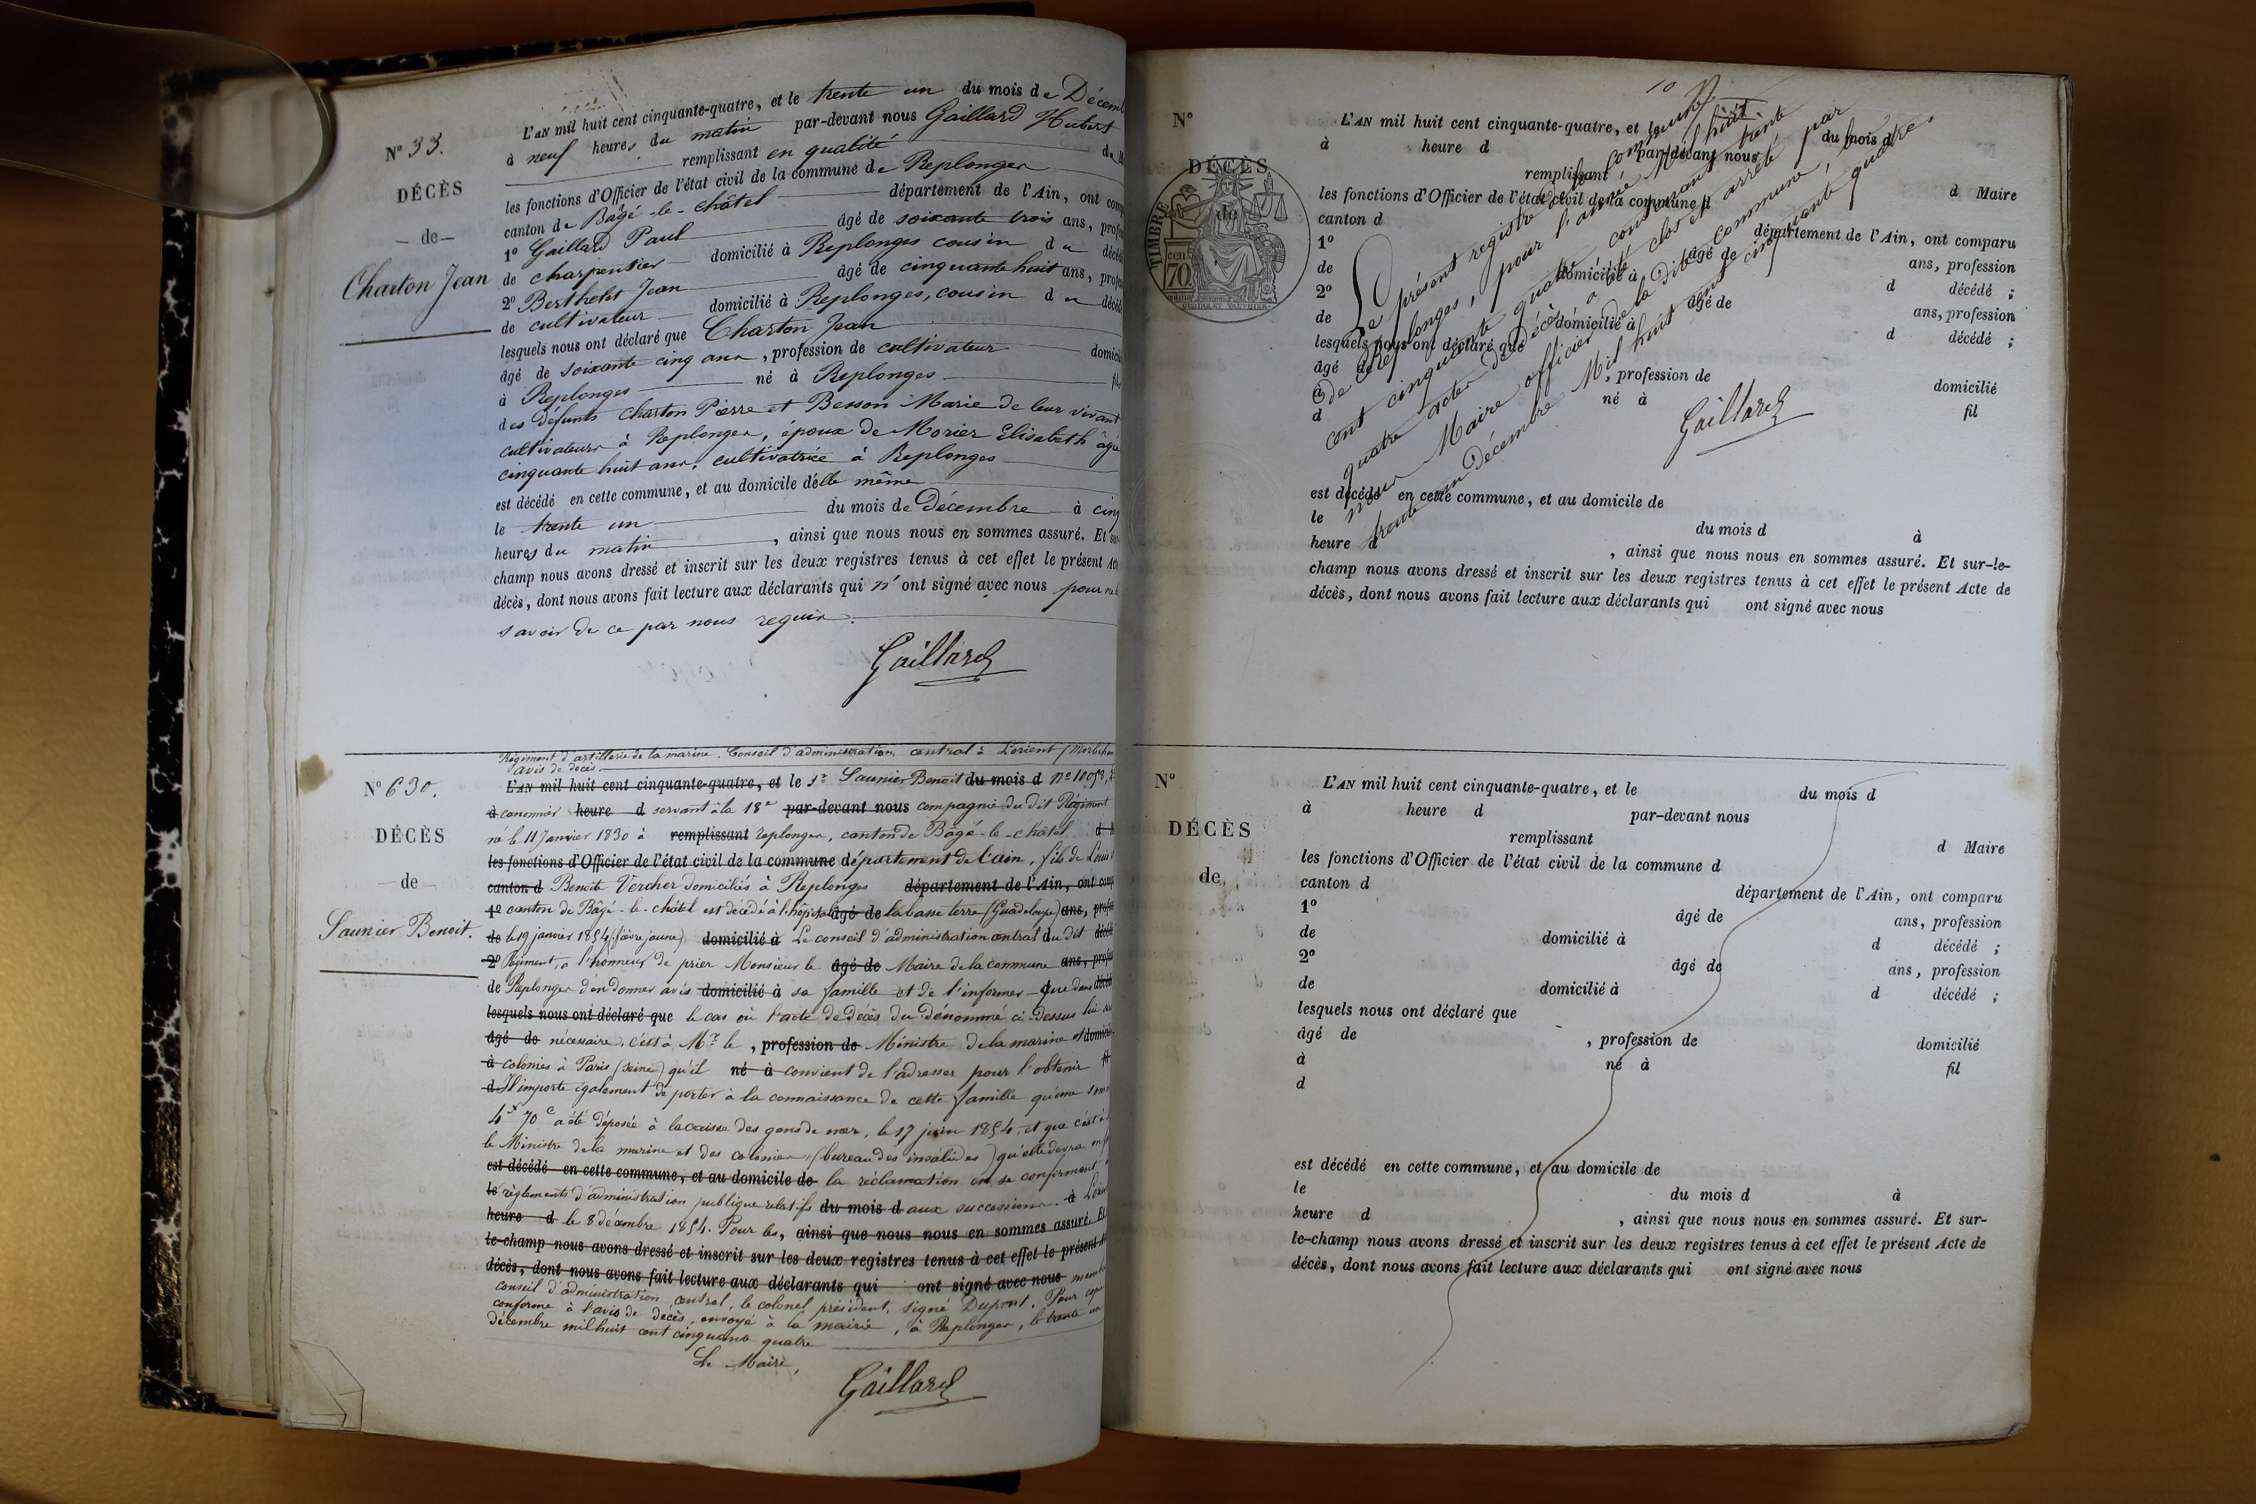 N° 33.
DÉCÈS
— de —
Charton Jean
L'AN mil huit cent cinquante-quatre, et le trente un du mois de Décem
à neuf heures du matin par-devant nous Gaillard Hubert
remplissant en qualité de
les fonctions d'Officier de l'état civil de la commune de Replonges
canton de Bâgé-le-châtel département de l'Ain, ont com
1° Gaillard Paul âgé de soixante trois ans, profe
de charpentier domicilié à Replonges cousin du décéd
2° Berthelet Jean âgé de cinquante huit ans, profe
de cultivateur domicilié à Replonges, cousin du décéd
lesquels nous ont déclaré que Charton Jean
âgé de soixante cinq ans, profession de cultivateur domici
à Replonges né à Replonges fil
des défunts Charton Pierre et Besson Marie de leur vivant
cultivateurs à Replonges, époux de Morier Elisabeth âgée
cinquante huit ans, cultivatrice à Replonges
est décédé en cette commune, et au domicile d'elle même
le trente un du mois de Décembre à cinq
heures du matin, ainsi que nous nous en sommes assuré. Et sur-
champ nous avons dressé et inscrit sur les deux registres tenus à cet effet le présent Acte
décès, dont nous avons fait lecture aux déclarants qui n'ont signé avec nous pour ne
savoir de ce par nous requis.
Gaillard
N° 630.
DÉCÈS
— de —
Saunier Benoit.
Régiment d'artillerie de la marine. Conseil d'administration central à Lorient (Morbihan
avis de décès
L'AN mil huit cent cinquante-quatre, et le Sr Saunier Benoit du mois d n° 11053,
à canonnier heure d servant à la 18e par-devant nous compagnie du dit Régiment
né le 11 Janvier 1830 à remplissant Replonges, canton de Bâgé-le-châtel d M
les fonctions d'Officier de l'état civil de la commune département de l'ain, fils de Louis
canton d Benoite Vercher domiciliés à Replonges département de l'Ain, ont comp
1° canton de Bâgé-le-châtel est décédé à l'hôpital âgé de la basse terre (Guadeloupe) ans, profe
de le 19 janvier 1854 (fièvre jaune) domicilié à Le conseil d'administration central du dit décéd
2° Régiment, a l'honneur de prier Monsieur le âgé de Maire de la commune ans, profe
de Replonges d'en donner avis domicilié à sa famille et de l'informer que dans décéd
lesquels nous ont déclaré que le cas où l'acte de décès du dénommé ci-dessus lui
âgé de nécessaire, c'est à Mr le, profession de Ministre de la marine et domici
à colonies à Paris (Seine) qu'il né à convient de l'adresser pour l'obtenir fil
d Il importe également de porter à la connaissance de cette famille qu'une som
4f 70c a été déposée à la caisse des gens de mer, le 17 juin 1854, et que c'est à
le Ministre de la marine et des colonies (bureau des invalides) qu'elle devra en
est décédé en cette commune, et au domicile de la réclamation en se conformant
le règlements d'administration publique relatifs du mois d aux successions. à Lorient
heure d le 8 décembre 1854. Pour les, ainsi que nous nous en sommes assuré. Et
le-champ nous avons dressé et inscrit sur les deux registres tenus à cet effet le présent
décès, dont nous avons fait lecture aux déclarants qui ont signé avec nous membres
conseil d'administration central, le colonel président, signé Dupont. Pour copie
conforme à l'avis de décès, envoyé à la mairie, à Replonges, le trente un
décembre mil huit cent cinquante quatre
Le Maire,
Gaillard
10
N°
DÉCÈS
de
TIMBRE
70 cent
L'AN mil huit cent cinquante-quatre, et le du mois d
à heure d par-devant nous
remplissant d Maire
les fonctions d'Officier de l'état civil de la commune d
canton d département de l'Ain, ont comparu
1° âgé de ans, profession
de domicilié à d décédé ;
2° âgé de ans, profession
de domicilié à d décédé ;
lesquels nous ont déclaré que
âgé de, profession de domicilié
à né à fil
d
Le présent registre de la commune
de Replonges, pour l'année Mil huit
cent cinquante quatre contenant trente
quatre actes de décès a été clos et arrêté par
nous Maire officier de la dite commune, le
trente un Décembre Mil huit cent cinquante quatre.
Gaillard
est décédé en cette commune, et au domicile de
le du mois d à
heure d, ainsi que nous nous en sommes assuré. Et sur-le-
champ nous avons dressé et inscrit sur les deux registres tenus à cet effet le présent Acte de
décès, dont nous avons fait lecture aux déclarants qui ont signé avec nous
N°
DÉCÈS
de
L'AN mil huit cent cinquante-quatre, et le du mois d
à heure d par-devant nous
remplissant d Maire
les fonctions d'Officier de l'état civil de la commune d
canton d département de l'Ain, ont comparu
1° âgé de ans, profession
de domicilié à d décédé ;
2° âgé de ans, profession
de domicilié à d décédé ;
lesquels nous ont déclaré que
âgé de, profession de domicilié
à né à fil
d
est décédé en cette commune, et au domicile de
le du mois d à
heure d, ainsi que nous nous en sommes assuré. Et sur-
le-champ nous avons dressé et inscrit sur les deux registres tenus à cet effet le présent Acte de
décès, dont nous avons fait lecture aux déclarants qui ont signé avec nous